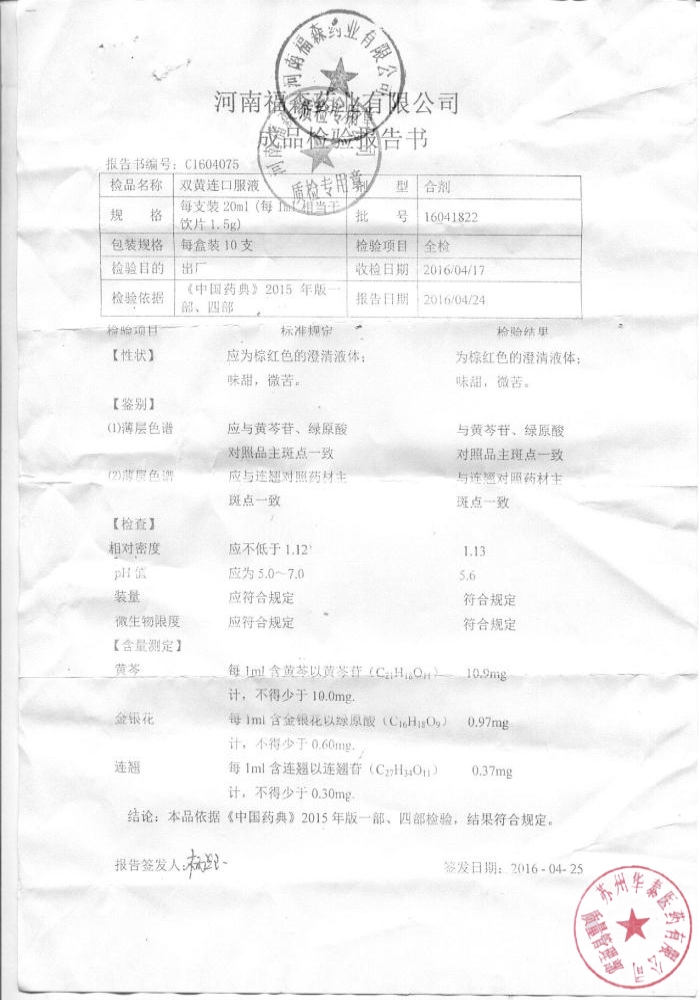 河南福森药业有限公司
质检专用章
河南福森药业有限公司
成品检验报告书
质检专用章
报告书编号：C1604075
检品名称 双黄连口服液 剂 型 合剂
规 格 每支装 20ml (每 1ml 相当于饮片 1.5g) 批 号 16041822
包装规格 每盒装 10 支 检验项目 全检
检验目的 出厂 收检日期 2016/04/17
检验依据 《中国药典》2015 年版一部、四部 报告日期 2016/04/24
检验项目 标准规定 检验结果
【性状】 应为棕红色的澄清液体； 为棕红色的澄清液体；
味甜，微苦。 味甜，微苦。
【鉴别】
⑴薄层色谱 应与黄芩苷、绿原酸 与黄芩苷、绿原酸
对照品主斑点一致 对照品主斑点一致
⑵薄层色谱 应与连翘对照药材主 与连翘对照药材主
斑点一致 斑点一致
【检查】
相对密度 应不低于 1.12 1.13
pH 值 应为 5.0～7.0 5.6
装量 应符合规定 符合规定
微生物限度 应符合规定 符合规定
【含量测定】
黄芩 每 1ml 含黄芩以黄芩苷（C₂₁H₁₈O₁₁） 10.9mg
计，不得少于 10.0mg.
金银花 每 1ml 含金银花以绿原酸（C₁₆H₁₈O₉） 0.97mg
计，不得少于 0.60mg.
连翘 每 1ml 含连翘以连翘苷（C₂₇H₃₄O₁₁） 0.37mg
计，不得少于 0.30mg.
结论：本品依据《中国药典》2015 年版一部、四部检验，结果符合规定。
报告签发人：
签发日期：2016-04-25
苏州华泰医药有限公司
质量管理部